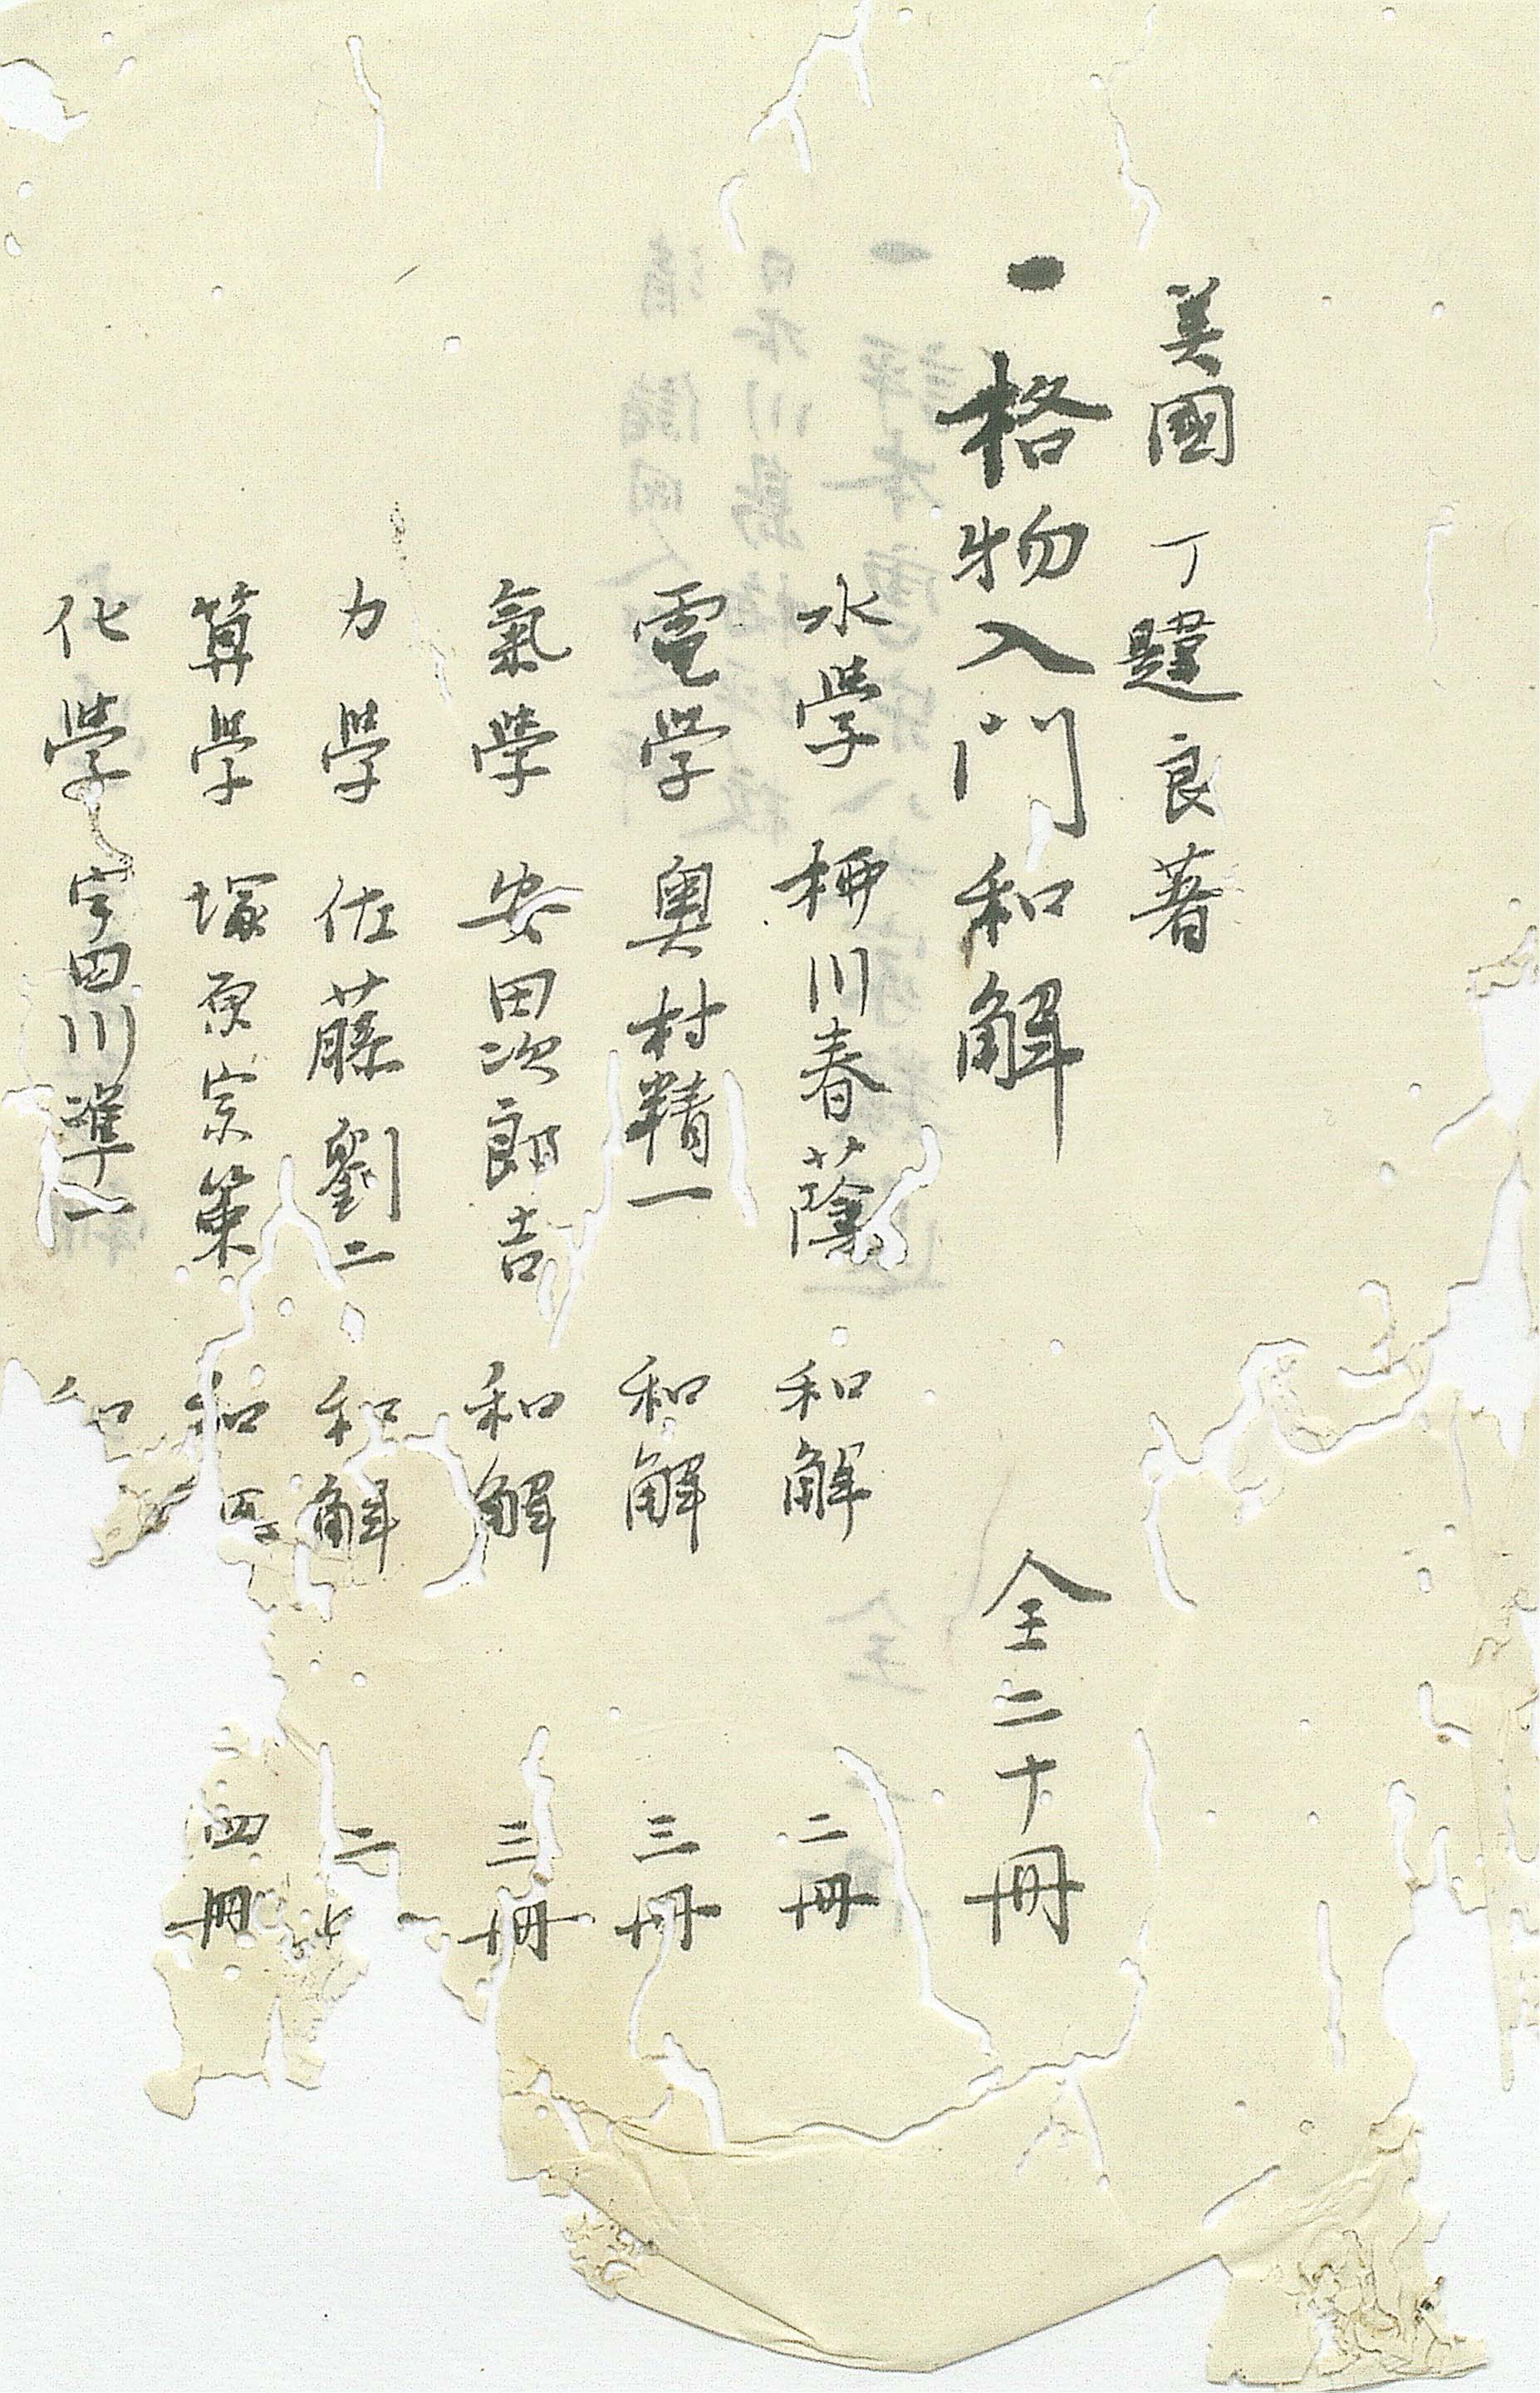 美國 丁韙良著
一格物入門和解 全二十冊
水学 柳川春蔭 和解 二冊
電学 奥村精一 和解 三冊
氣学 安田次郎吉 和解 三冊
力学 佐藤劉二 和解 二
算学 塚原宗策 和 四冊
化学 宇田川準一 和